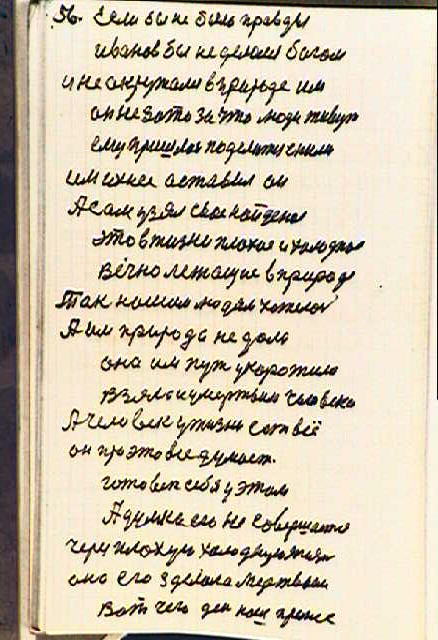 56. Если бы не было правды
Иванов бы не делался богом
и не окружали в Природе им
он не зато за что люди живут
ему пришлось поделится с ними
им ихнее оставил он
А сам узял своё найденое
это в жизни плохое и холодное
вечно лежащие в природе
Так нашим людям хотелося
А им природа не дала
она им путь укоротила
взяла и умертвила человека
А человек у жизни сам всё
он про это всё думает.
готовит себя у этом
А думка его не совершается
через плохую холодную жизнь
она его зделала мертвым
Вот чего ден наш принес